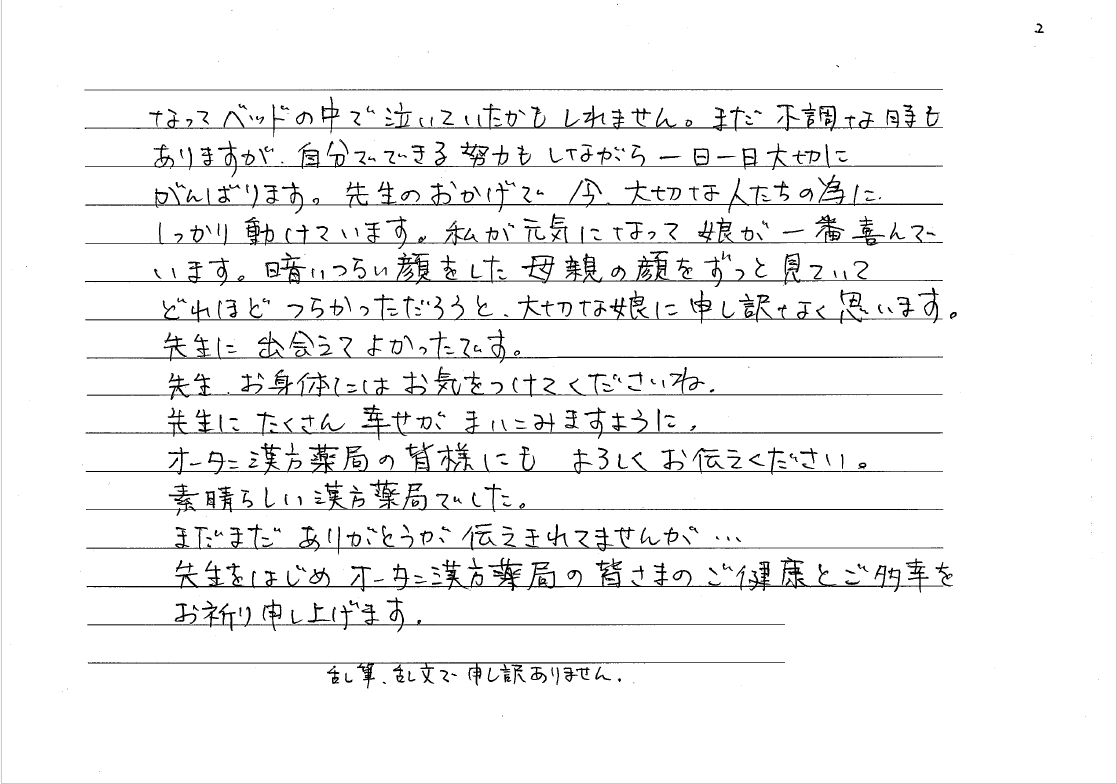 2
なってベッドの中で泣いていたかもしれません。まだ不調な時も
ありますが、自分でできる努力もしながら一日一日大切に
がんばります。先生のおかげで今、大切な人たちの為に、
しっかり動けています。私が元気になって娘が一番喜んで
います。暗いつらい顔をした母親の顔をずっと見ていて
どれほどつらかっただろうと、大切な娘に申し訳なく思います。
先生に出会えてよかったです。
先生、お身体にはお気をつけてくださいね。
先生にたくさん幸せがまいこみますように。
オータニ漢方薬局の皆様にもよろしくお伝えください。
素晴らしい漢方薬局でした。
まだまだありがとうが伝えきれてませんが…
先生をはじめオータニ漢方薬局の皆さまのご健康とご多幸を
お祈り申し上げます。
乱筆、乱文で申し訳ありません。